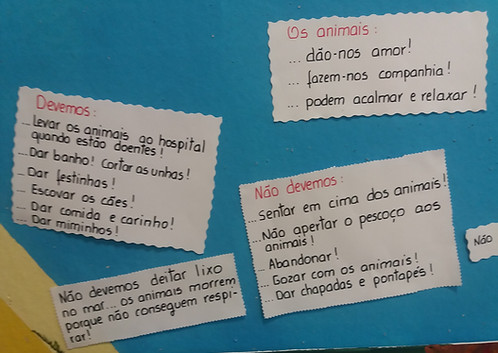 Os animais:
... dão-nos amor!
... fazem-nos companhia!
... podem acalmar e relaxar!
Devemos:
...Levar os animais ao hospital
quando estão doentes!
...Dar banho! Cortar as unhas!
...Dar festinhas!
... Escovar os cães!
... Dar comida e carinho!
... Dar miminhos!
Não devemos:
...Sentar em cima dos animais!
...Não apertar o pescoço aos
animais!
... Abandonar!
... Gozar com os animais!
... Dar chapadas e pontapés!
Não
Não devemos deitar lixo
no mar... os animais morrem
porque não conseguem respi-
rar!